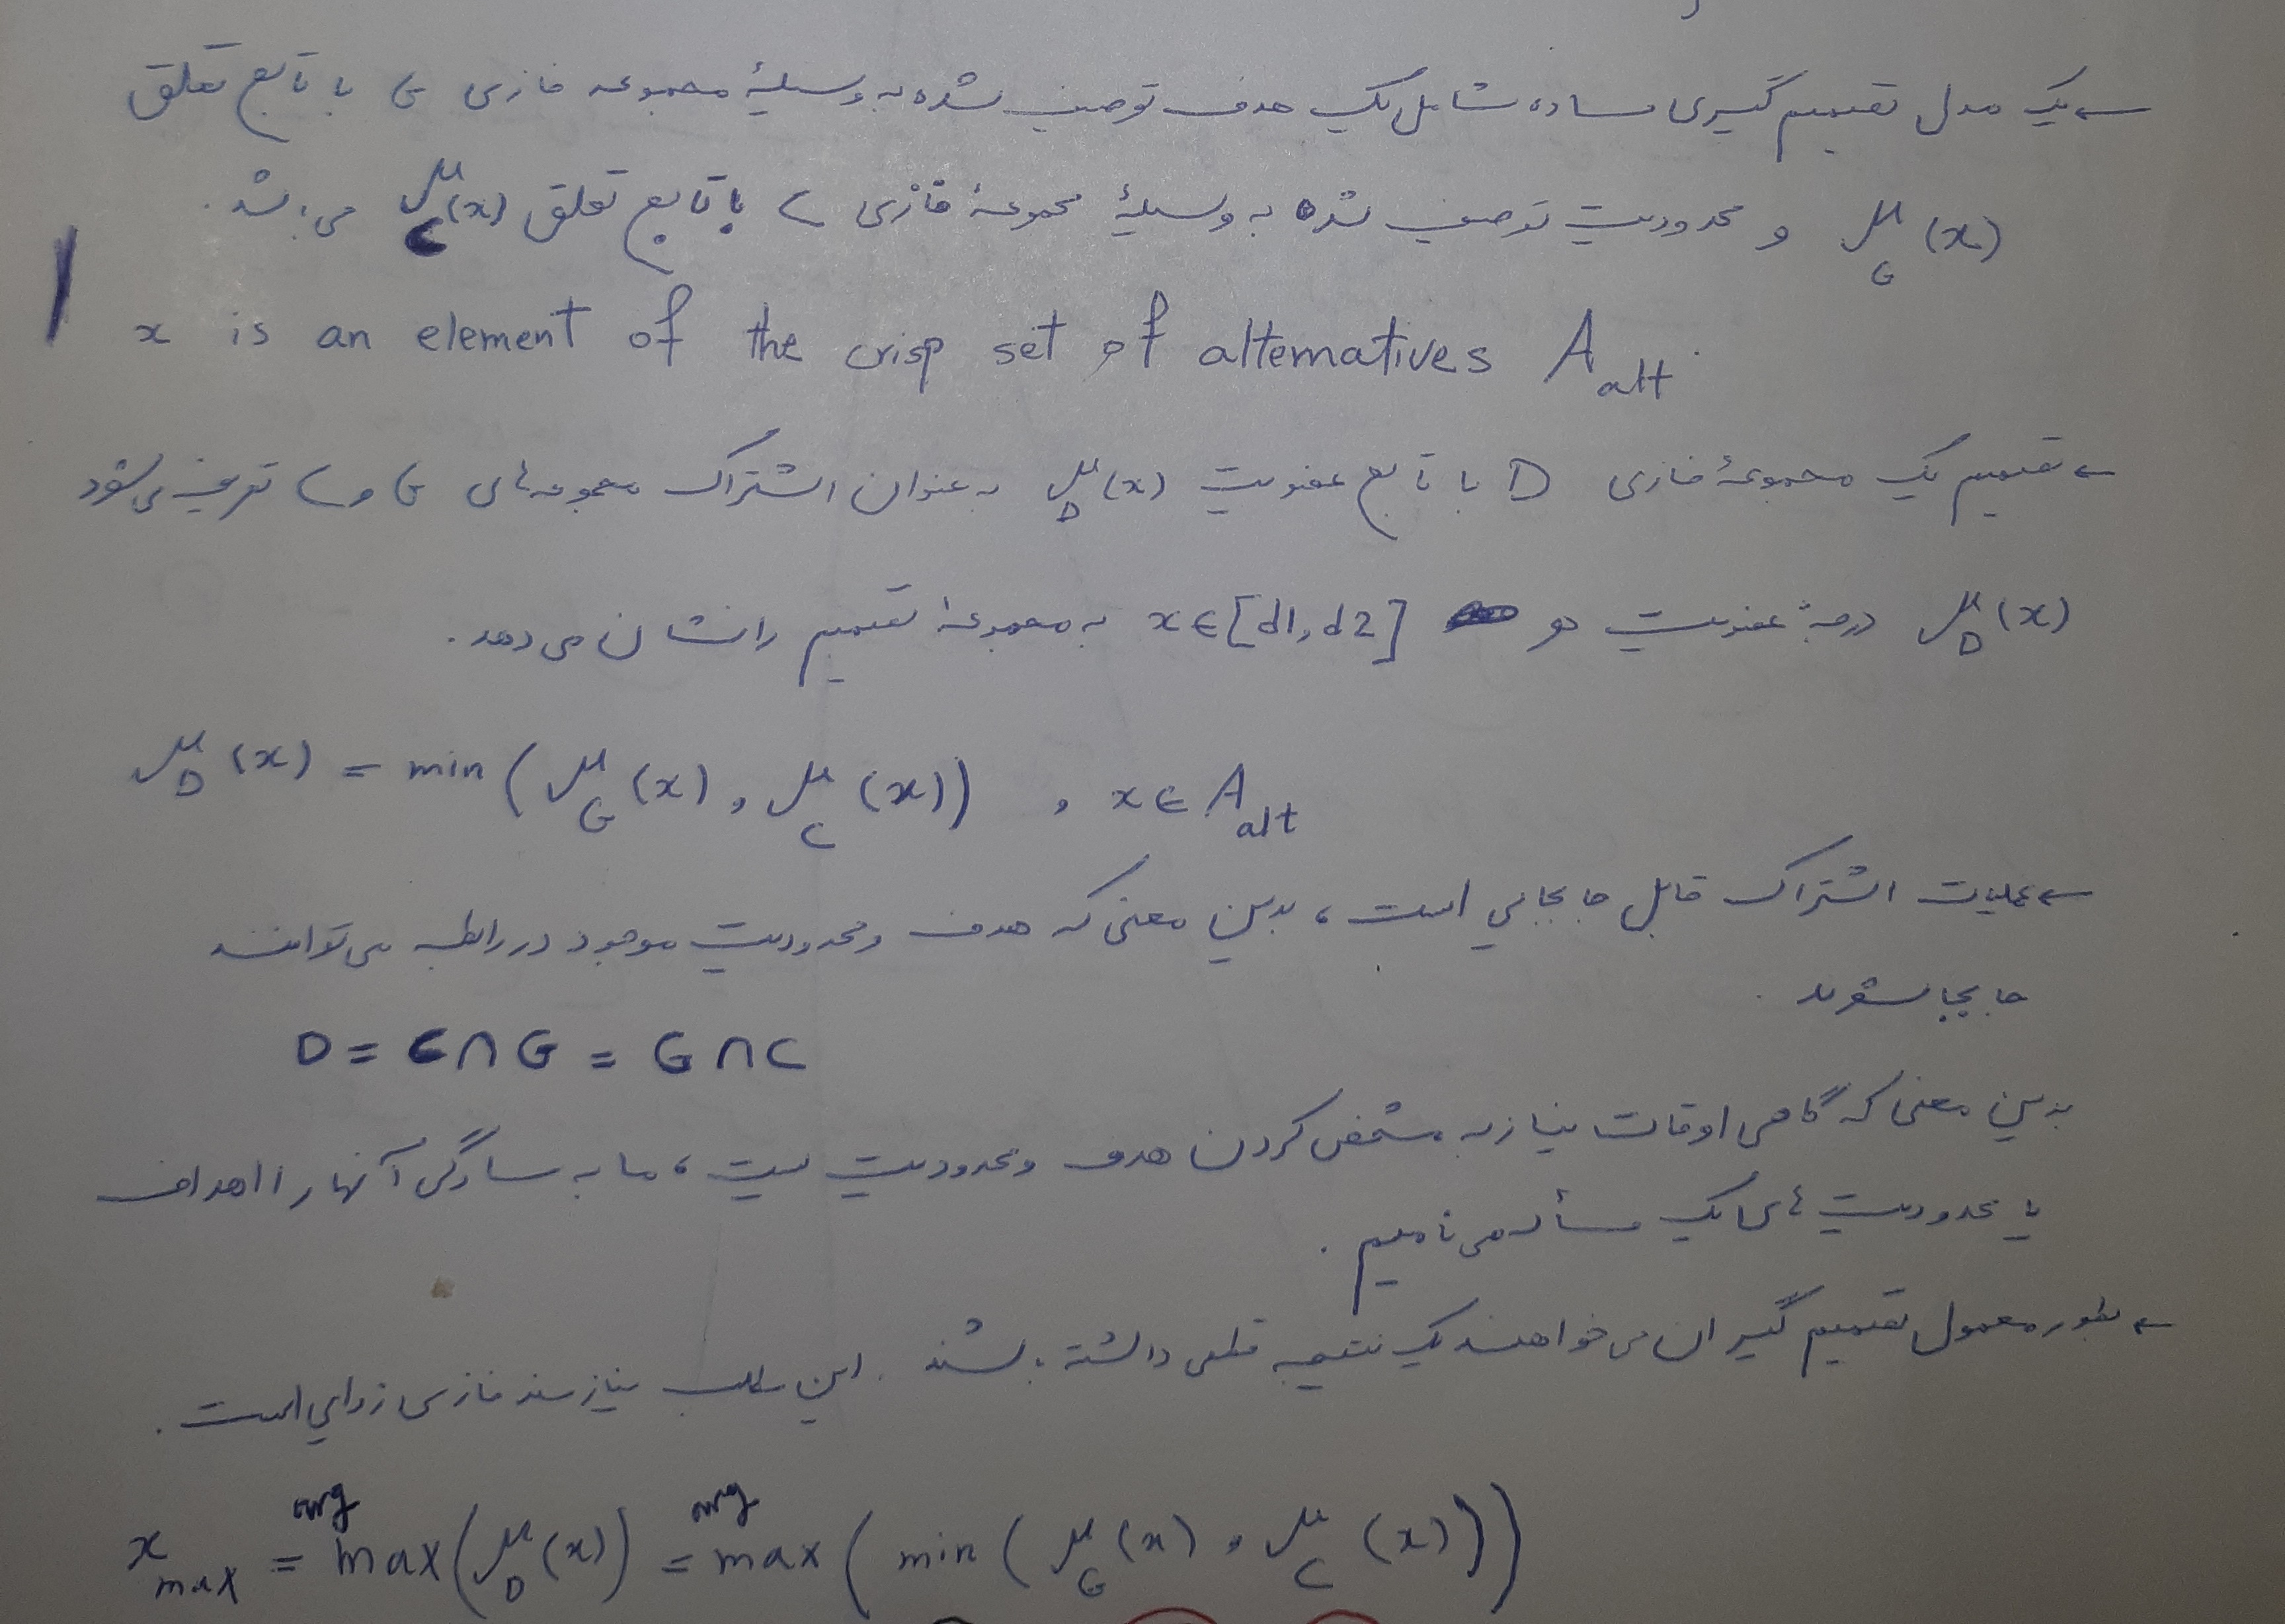 ← یک مدل تصمیم گیری ساده شامل یک هدف توصیف شده به وسیلهٔ مجموعه فازی G با تابع تعلق
μ_G (x) و محدودیت توصیف شده به وسیلهٔ مجموعهٔ فازی C با تابع تعلق μ_C (x) می باشد.
x is an element of the crisp set of alternatives A_alt.
← تصمیم یک مجموعهٔ فازی D با تابع عضویت μ_D (x) به عنوان اشتراک مجموعه های G و C تعریف می شود
μ_D (x) درجهٔ عضویت هر x∈[d1,d2] به مجموعهٔ تصمیم را نشان می دهد.
μ_D (x) = min (μ_G (x), μ_C (x)) , x∈A_alt
← عملیات اشتراک قابل جابجایی است، بدین معنی که هدف و محدودیت موجود در رابطه می توانند
جابجا شوند.
D = C∩G = G∩C
بدین معنی که گاهی اوقات نیاز به مشخص کردن هدف و محدودیت نیست، ما به سادگی آنها را اهداف
یا محدودیت های یک مسأله می نامیم.
← بطور معمول تصمیم گیران می خواهند یک نتیجه قطعی داشته باشند. این مطلب نیازمند فازی زدایی است.
x_max = arg max(μ_D (x)) = arg max (min (μ_G (x), μ_C (x)))